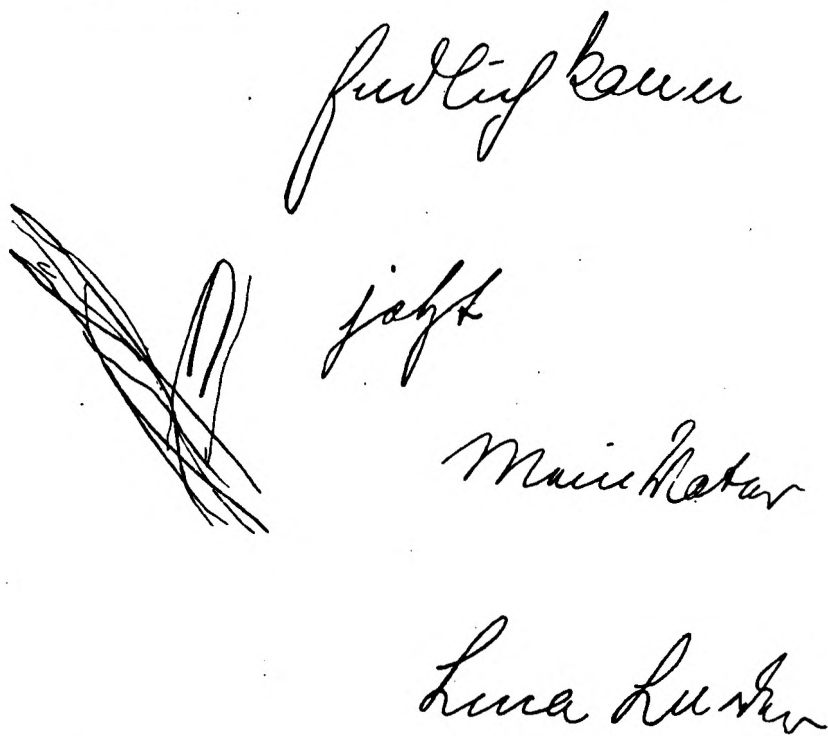 Endlich kann
jetzt
Mein Vater
Lina